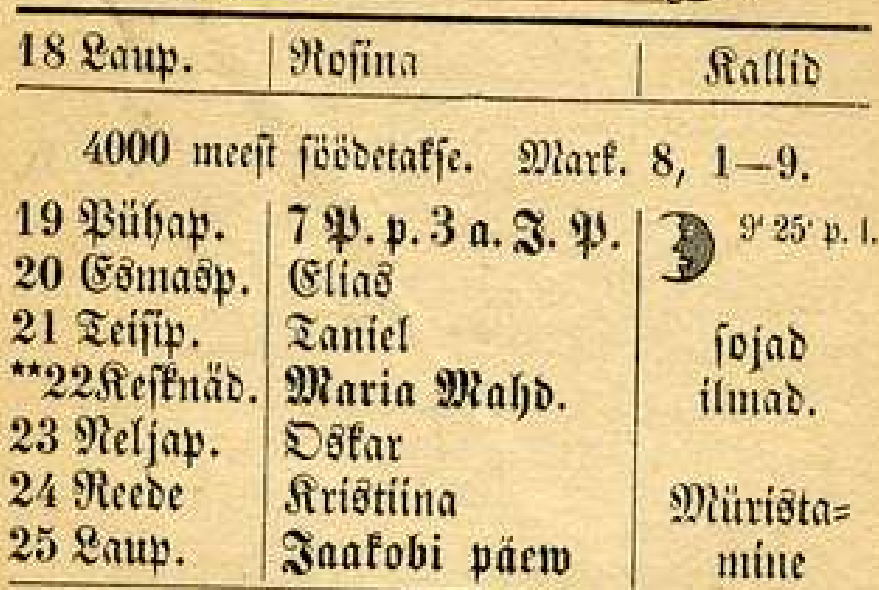 18 Laup. Rosina Kallid
4000 meest söödetakse. Mark. 8, 1—9.
19 Pühap. 7 P. p. 3 a. J. P. 9' 25' p. l.
20 Esmasp. Elias
21 Teisip. Taniel sojad
**22 Kesknäd. Maria Mahd. ilmad.
23 Neljap. Oskar
24 Reede Kristiina Mürista=
25 Laup. Jaakobi päew mine